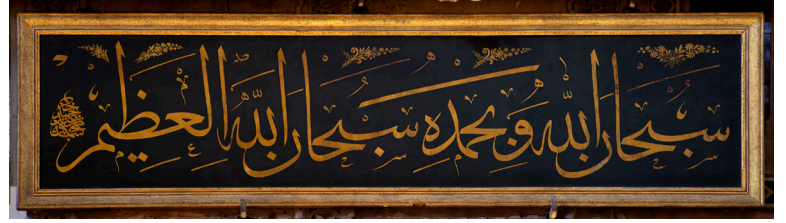 سبحان الله وبحمده سبحان الله العظيم